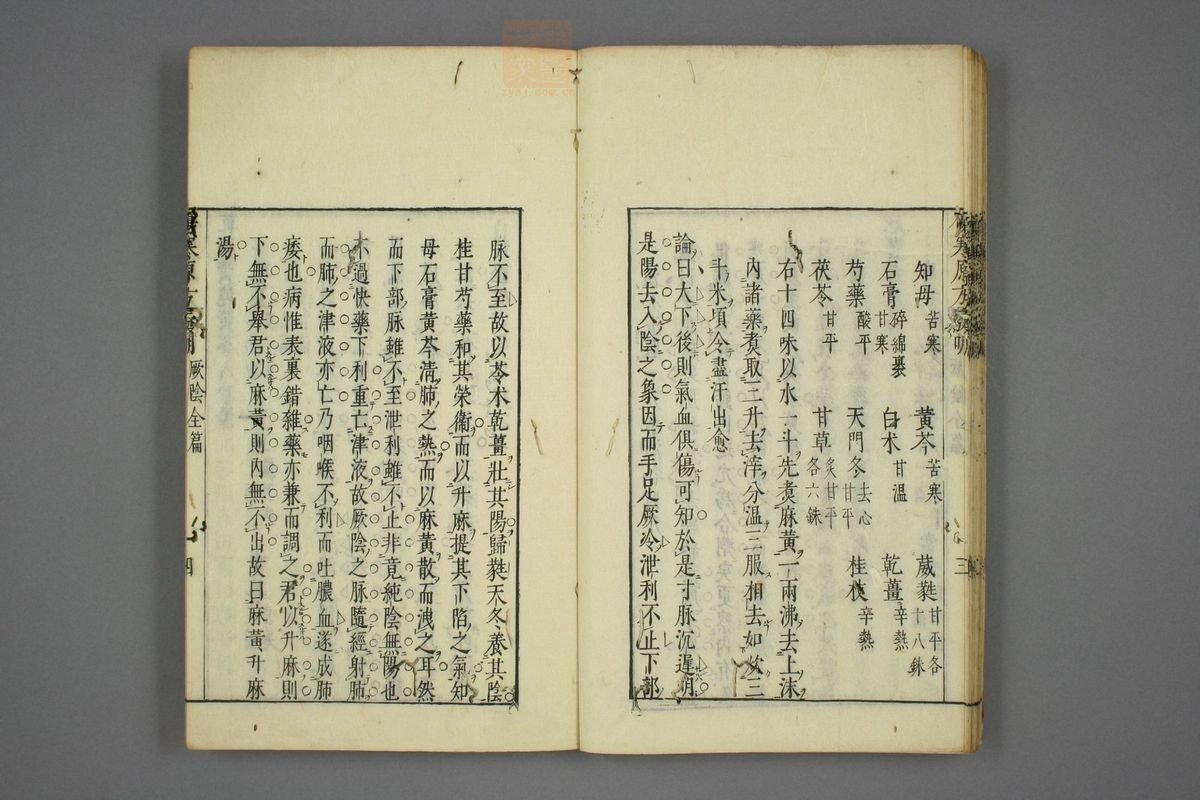 知母苦寒 黃芩苦寒 葳蕤甘平各十八銖
石膏碎綿裹甘寒 白朮甘溫 乾薑辛熱
芍藥酸平 天門冬去心甘平 桂枝辛熱
茯苓甘平 甘草炙甘平各六銖
右十四味以水一斗先煑麻黃一兩沸去上沫
內諸藥煑取三升去滓分溫三服相去如炊三
斗米頃令盡汗出愈
論曰大下後則氣血俱傷可知於是寸脉沉遲明
是陽去入陰之象因而手足厥冷泄利不止下部
三
脉不至故以苓朮乾薑壯其陽歸蕤天冬養其陰
桂甘芍藥和其榮衞而以升麻提其下陷之氣知
母石膏黃芩清肺之熱而以麻黃散而洩之耳然
而下部脉雖不至泄利雖不止非竟純陰無陽也
不過快藥下利重亡津液故厥陰之脉隨經射肺
而肺之津液亦亡乃咽喉不利而吐膿血遂成肺
痿也病惟表裏錯雜藥亦兼而調之君以升麻則
下無不舉君以麻黃則內無不出故曰麻黃升麻
湯
厥陰全篇
四